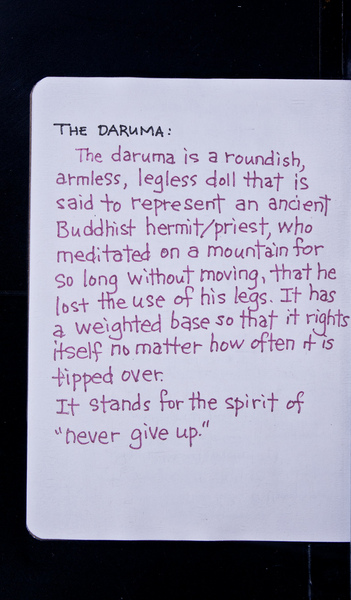 THE DARUMA:
The daruma is a roundish,
armless, legless doll that is
said to represent an ancient
Buddhist hermit/priest, who
meditated on a mountain for
so long without moving, that he
lost the use of his legs. It has
a weighted base so that it rights
itself no matter how often it is
tipped over.
It stands for the spirit of
"never give up."